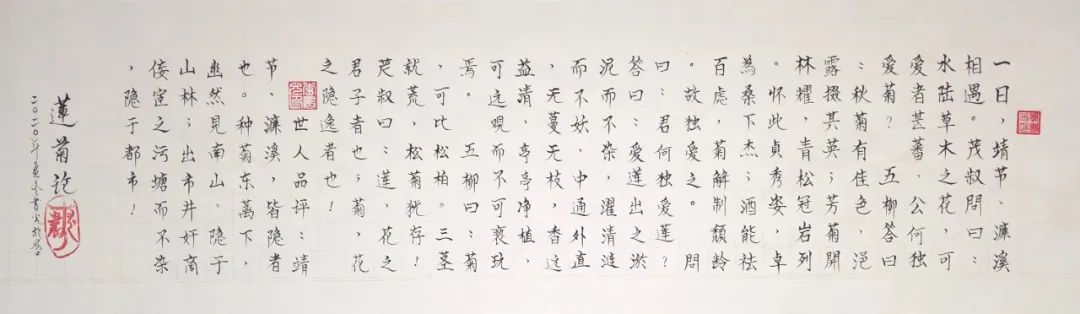 一日，靖节、濂溪
相遇。茂叔问曰：
水陆草木之花，可
爱者甚蕃，公何独
爱菊？ 五柳答曰
：秋菊有佳色，浥
露掇其英；芳菊開
林耀，青松冠岩列
。怀此贞秀姿，卓
為桑下杰；酒能祛
百虑，菊解制颓龄
。故独爱之。 問
曰：君何独爱莲？
答曰：爱莲出之淤
泥而不染，濯清涟
而不妖，中通外直
，无蔓无枝，香远
益清，亭亭净植，
可远观而不可亵玩
焉。 五柳曰：菊
，可比松柏。三茎
就荒，松菊犹存！
茂叔曰：莲，花之
君子者也；菊，花
之隐逸者也！
世人品评：靖
节、濂溪，皆隐者
也。种菊东蓠下，
幽然见南山，隐于
山林；出市井奸商
倭宦之污塘而不染
，隐于都市！
蓮菊论
二〇二〇年